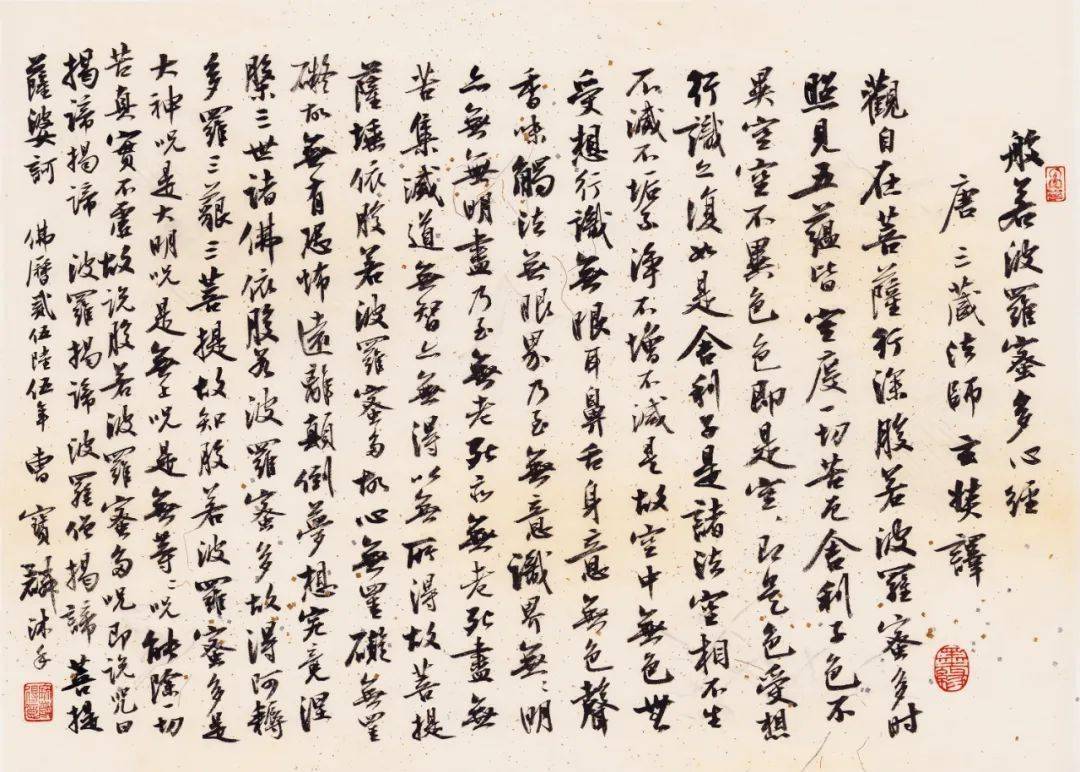 般若波羅蜜多心經
唐三藏法師玄奘譯
觀自在菩薩行深般若波羅蜜多时
照見五蘊皆空度一切苦厄舍利子色不
異空空不異色色即是空〻即是色受想
行識亦復如是舍利子是諸法空相不生
不滅不垢不淨不增不減是故空中無色無
受想行識無眼耳鼻舌身意無色聲
香味觸法無眼界乃至無意識界無〻明
亦無無明盡乃至無老死亦無老死盡無
苦集滅道無智亦無得以無所得故菩提
薩埵依般若波羅蜜多故心無罣礙無罣
礙故無有恐怖遠離顛倒夢想究竟涅
槃三世諸佛依般若波羅蜜多故得阿耨
多羅三藐三菩提故知般若波羅蜜多是
大神呪是大明呪是無上呪是無等〻呪能除一切
苦真實不虛故說般若波羅蜜多呪即說呪曰
揭諦揭諦 波羅揭諦 波羅僧揭諦 菩提
薩婆訶 佛曆貳伍陸伍年 曹寶麟沐手